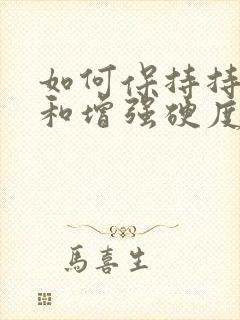 如何保持持
和增强硬度
馬喜生